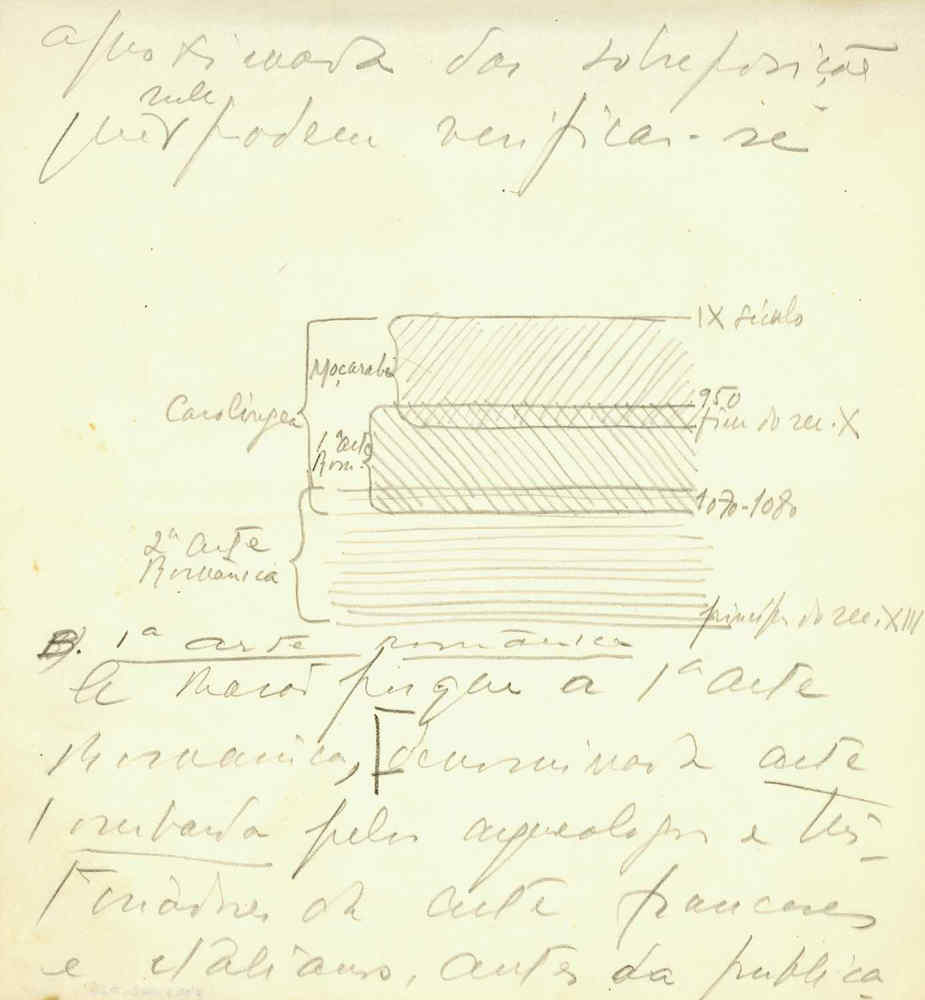 aproximada das sobreposições
que nele podem verificar-se
IX século
Moçarabe
950
Carolingea
fim do sec. X
1ª arte
Rom.
1070-1080
2ª arte
Românica
princípio do sec. XIII
B). 1ª arte românica
A razão porque a 1ª arte
Romanica, [denominada arte
lombarda pelos arqueologos e his-
toriadores da arte franceses
e italianos, antes da publica